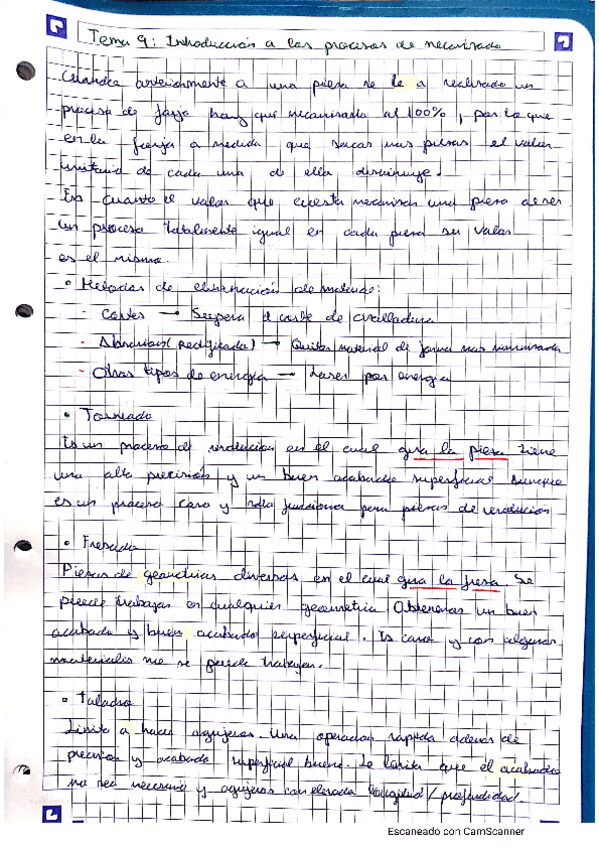 Tema 9: Introducción a los procesos de mecanizado
Cuando anteriormente a una pieza se le a realizado un
proceso de forja hay que mecanizarla al 100%, por lo que
en la forja a medida que sacas mas piezas el valor
unitario de cada una de ella disminuye.
En cuanto el valor que cuesta mecanizar una pieza al ser
un proceso totalmente igual en cada pieza su valor
es el mismo.
• Metodos de eliminación de material:
- Cortes → Supera el corte de cizalladura
- Abrasion (rectificado) → Quitar material de forma mas
- Otros tipos de energia → Laser por energia
• Torneado
Es un proceso de revolucion en el cual gira la pieza tiene
una alta precisión y un buen acabado superficial aunque
es un proceso caro y solo funciona para piezas de revolución
• Fresado
Piezas de geometrias diversas en el cual gira la fresa. Se
puede trabajar en cualquier geometria Obtenemos un buen
acabado y buen acabado superficial. Es caro y con algunos
materiales no se puede trabajar.
• Taladro
Limita a hacer agujeros. Una operacion rapida ademas de
precision y acabado superficial bueno. Le limita que el acabado
no sea necesario y agujeros con elevada longitud/profundidad.
Escaneado con CamScanner